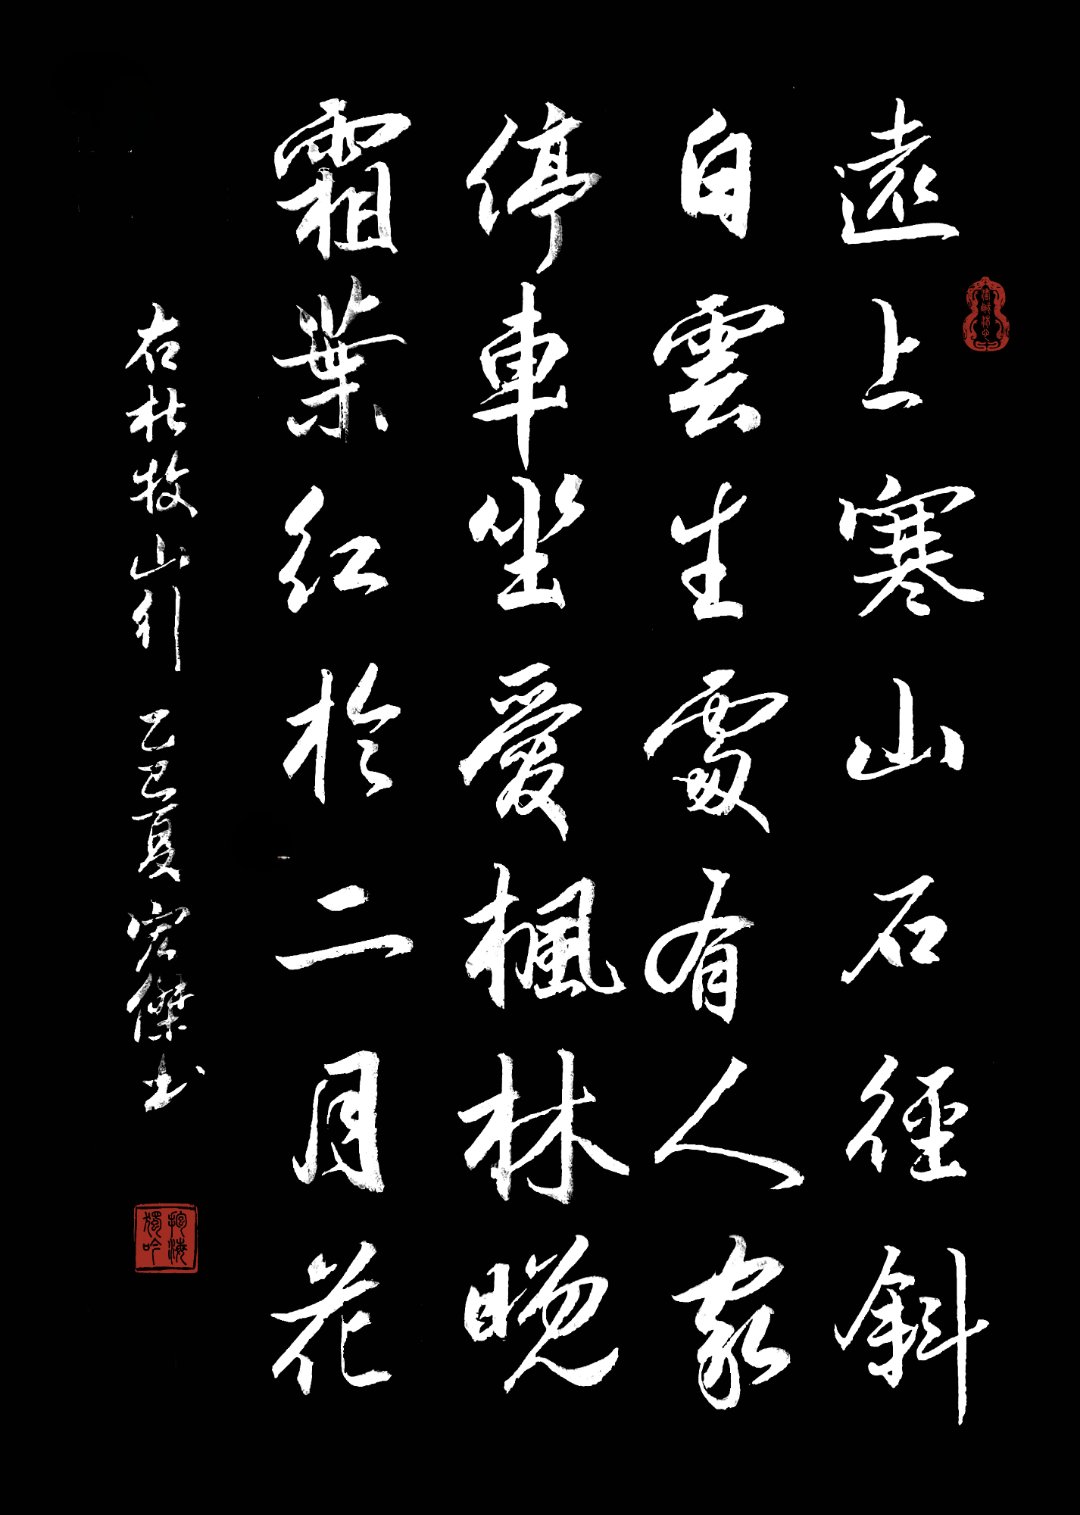 遠上寒山石徑斜
白雲生處有人家
停車坐愛楓林晚
霜葉紅於二月花
右杜牧山行 乙巳夏 宏傑书